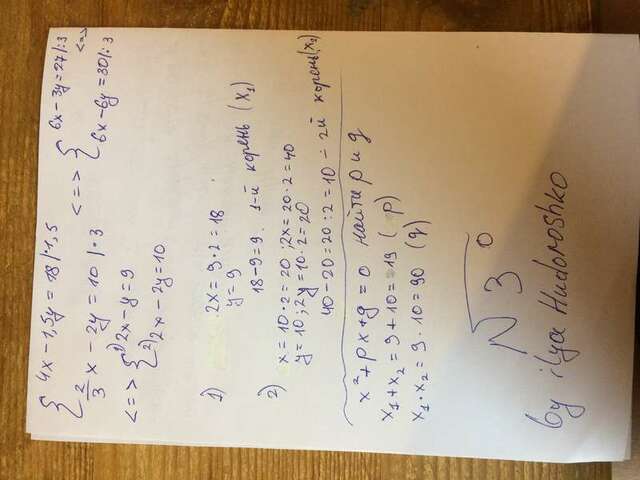 4x - 1,5y = 18 |·1,5
2/3 x - 2y = 10 |·3
<=>
6x - 3y = 27 |:3
6x - 6y = 30 |:3
<=>
<=> 1) 2x - y = 9
2) 2x - 2y = 10
1) 2x = 9·2 = 18
y = 9
18 - 9 = 9. 1-й корень (x₁)
2) x = 10·2 = 20 ; 2x = 20·2 = 40
y = 10 ; 2y = 10·2 = 20
40 - 20 = 20 : 2 = 10 - 2й корень (x₂)
x² + px + q = 0 найти p и q
x₁ + x₂ = 9 + 10 = 19 ( p)
x₁ · x₂ = 9 · 10 = 90 (q)
√3⁰
by ilya Hudoroshko